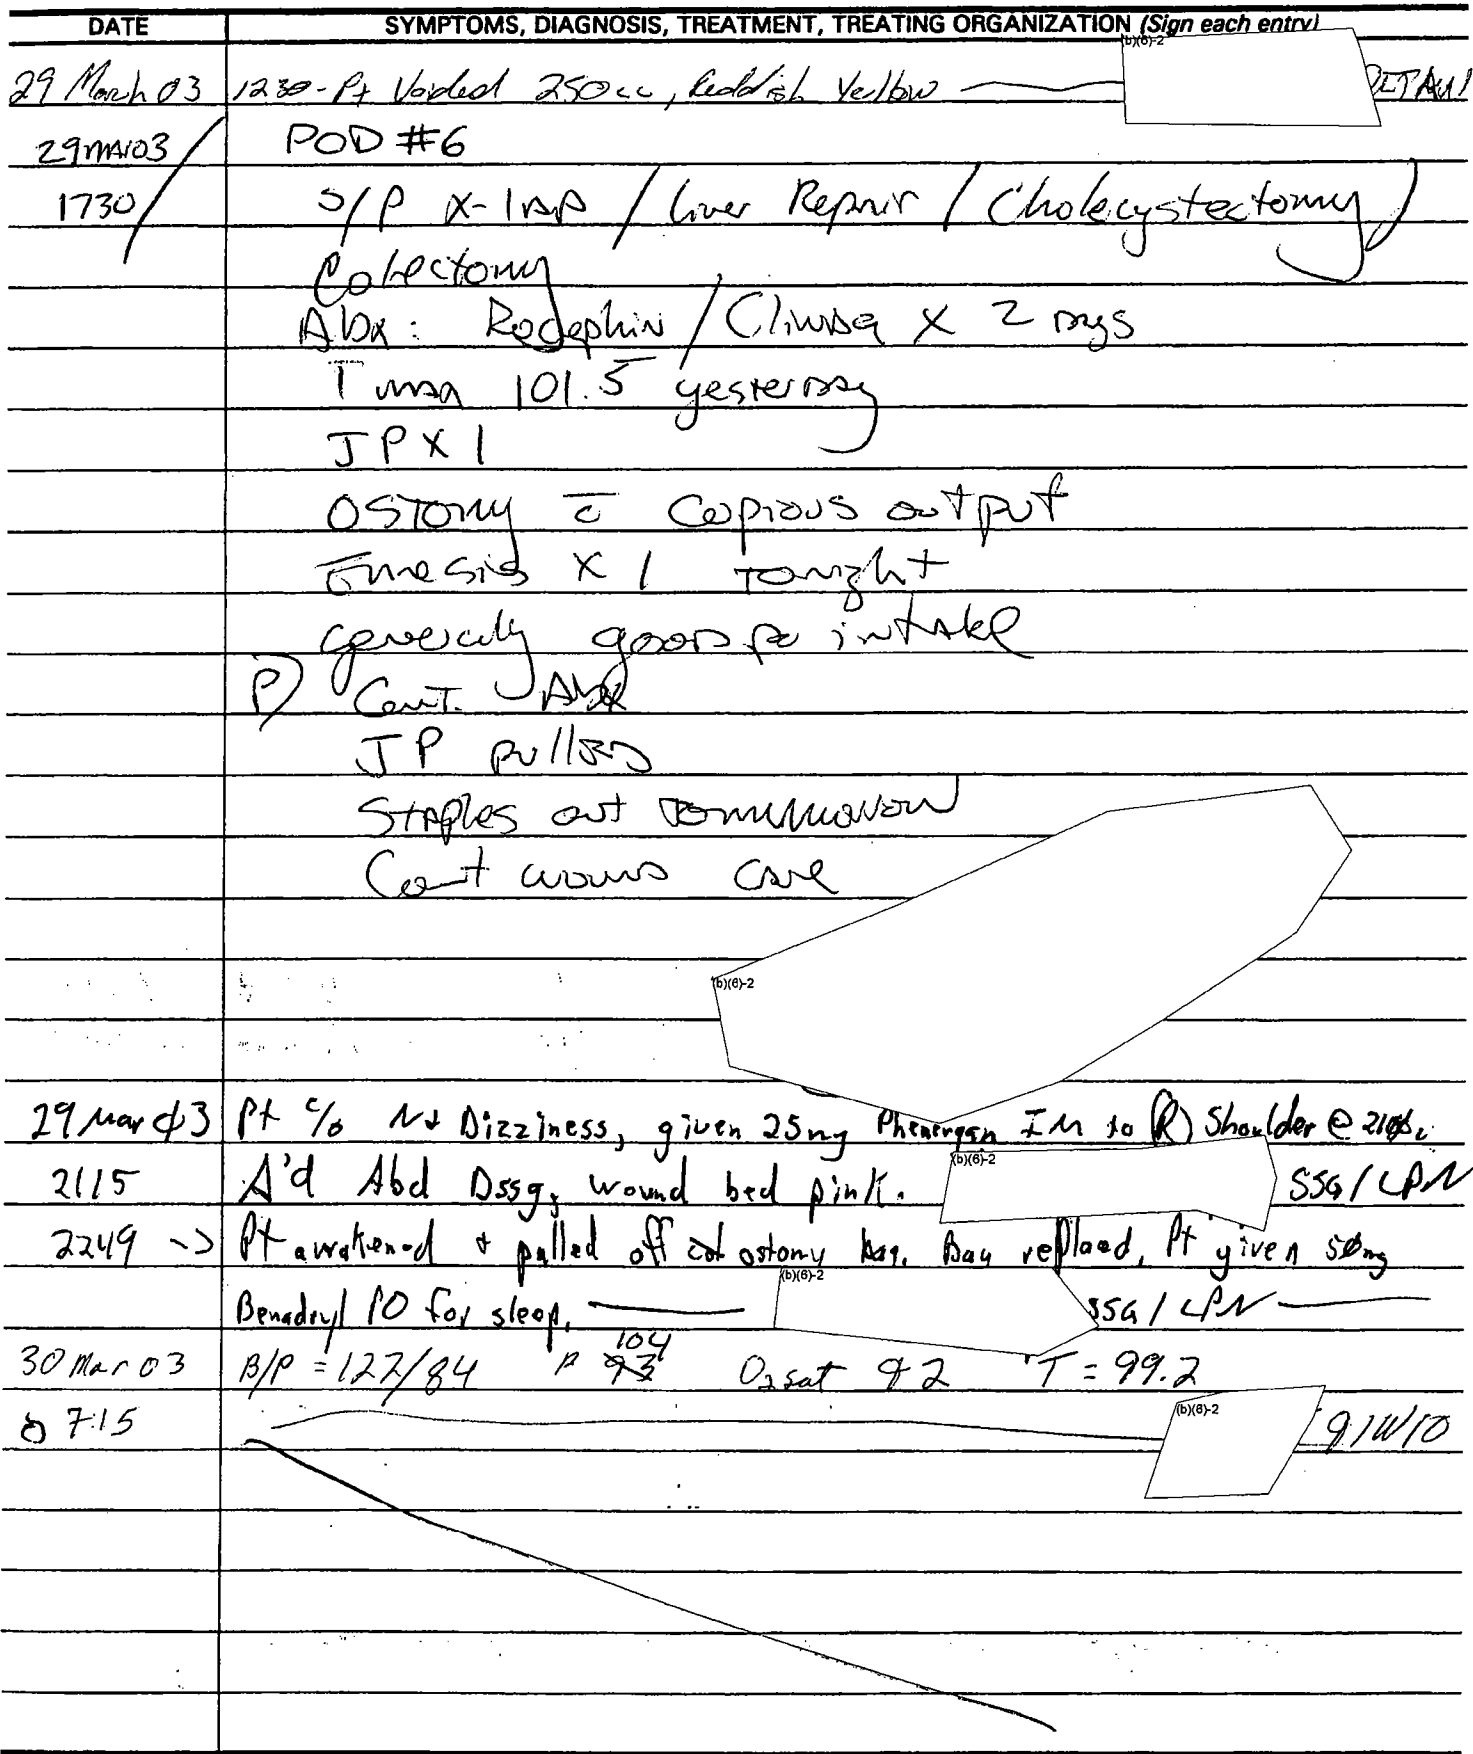 DATE SYMPTOMS, DIAGNOSIS, TREATMENT, TREATING ORGANIZATION (Sign each entry)
(b)(6)-2
29 March 03 1230-Pt Voided 250cc, Reddish Yellow
29 MAR 03 / POD #6
1730 / S/P X-lap / Liver Repair / Cholecystectomy /
Colectomy
Abx: Rocephin / Clinda x 2 days
T max 101.5 yesterday
JP X 1
OSTOMY c̄ Copious output
Emesis X 1 tonight
generally good po intake
P) Cont. Abx
JP pulled
Staples out tomorrow
Cont wound care
(b)(6)-2
29 Mar 03 Pt c/o N+ Dizziness, given 25mg Phenergan IM to (R) Shoulder @
2115 Δ'd Abd Dssg, wound bed pink. (b)(6)-2 SSG / LPN
2249 -> Pt awakened + pulled off colostomy bag. Bag replaced, Pt given 50mg
Benadryl PO for sleep. (b)(6)-2 SSG / LPN
30 Mar 03 B/P = 122/84 P 93 104 O2 sat 92 T = 99.2
07:15 (b)(6)-2 91W10